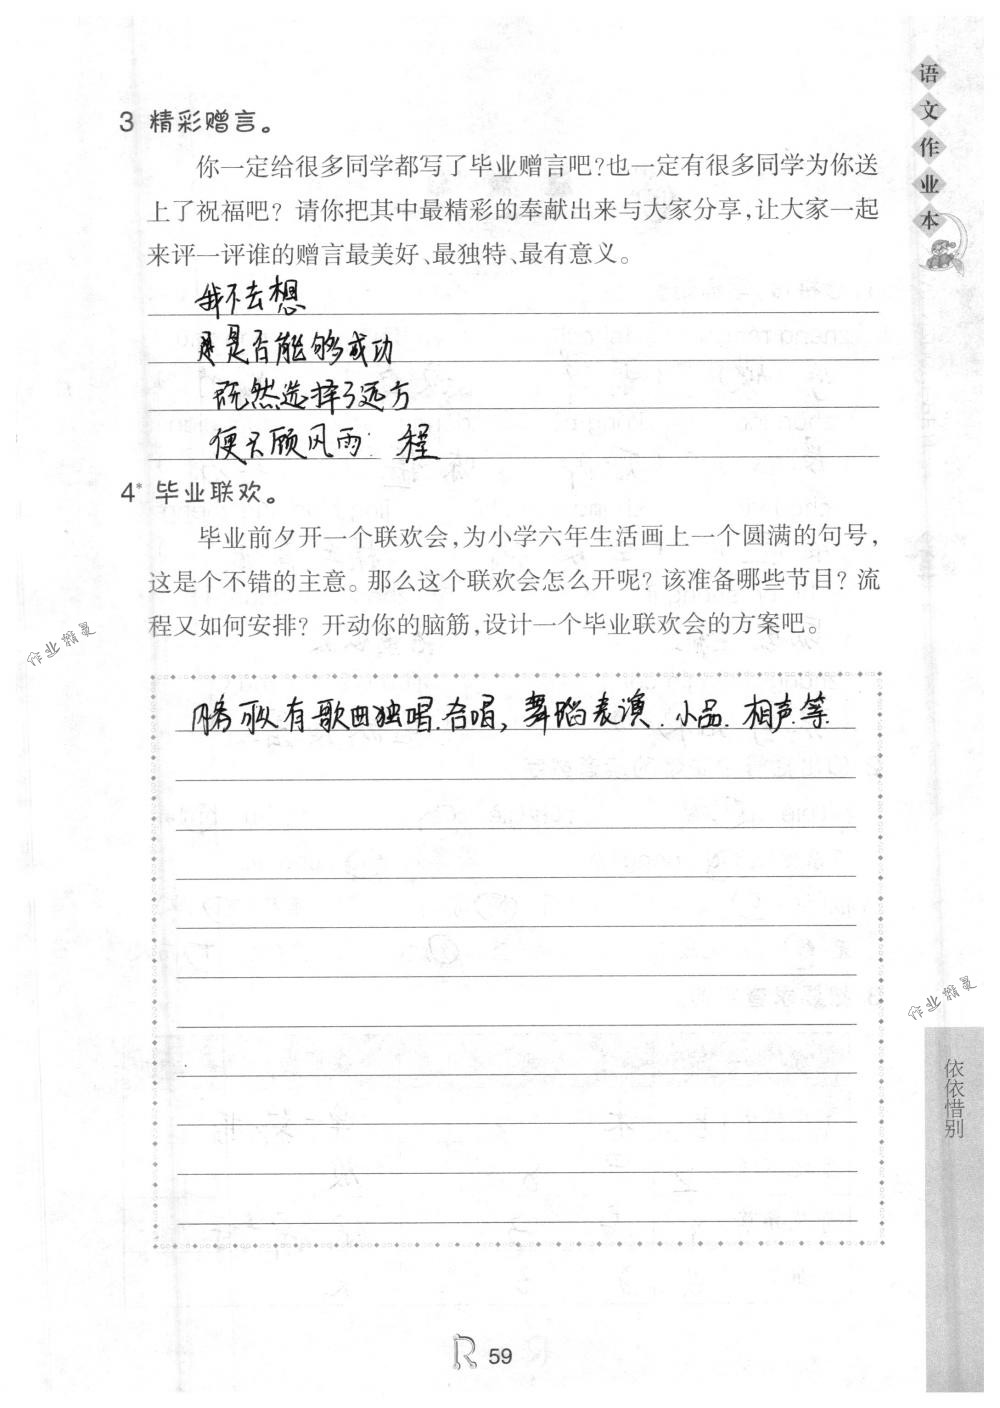 语文作业本
3 精彩赠言。
你一定给很多同学都写了毕业赠言吧?也一定有很多同学为你送
上了祝福吧？请你把其中最精彩的奉献出来与大家分享，让大家一起
来评一评谁的赠言最美好、最独特、最有意义。
我不去想
是是否能够成功
既然选择了远方
便只顾风雨：程
4* 毕业联欢。
毕业前夕开一个联欢会，为小学六年生活画上一个圆满的句号，
这是个不错的主意。那么这个联欢会怎么开呢？该准备哪些节目？流
程又如何安排？开动你的脑筋，设计一个毕业联欢会的方案吧。
作业精灵
有歌曲独唱.合唱，舞蹈表演.小品.相声.等.
作业精灵
依依惜别
R 59